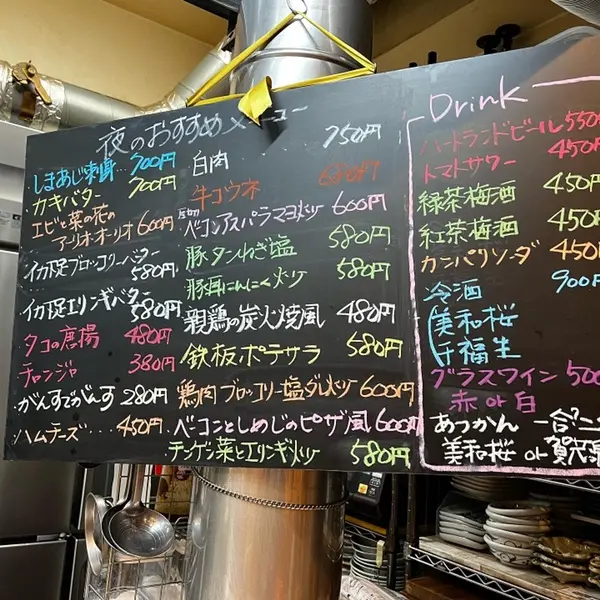 夜のおすすめメニュー
しまあじ刺身…700円
カキバター 700円
エビと菜の花の
アーリオ・オーリオ 600円
イカ足ブロッコリーバター
580円
イカ足エリンギバター
580円
タコの唐揚 480円
チャンジャ 380円
がんすでがんす 280円
ハムチーズ....450円
白肉 750円
牛コウネ 680円
ベーコンアスパラマヨメソ 600円
豚タンねぎ塩 580円
豚耳にんにくメソ 580円
親鶏の炭火焼風 480円
鉄板ポテサラ 580円
鶏肉ブロッコリー塩ダレメソ 600円
ベーコンとしめじのピザ風 600円
チンゲン菜とエリンギメソ 580円
Drink
ハートランドビール 550
トマトサワー 450円
緑茶梅酒 450円
紅茶梅酒 450円
カンパリソーダ 450
冷酒 900円
美和桜
千福生
グラスワイン 500
赤 or 白
あつかん 一合
美和桜 or 贅沢